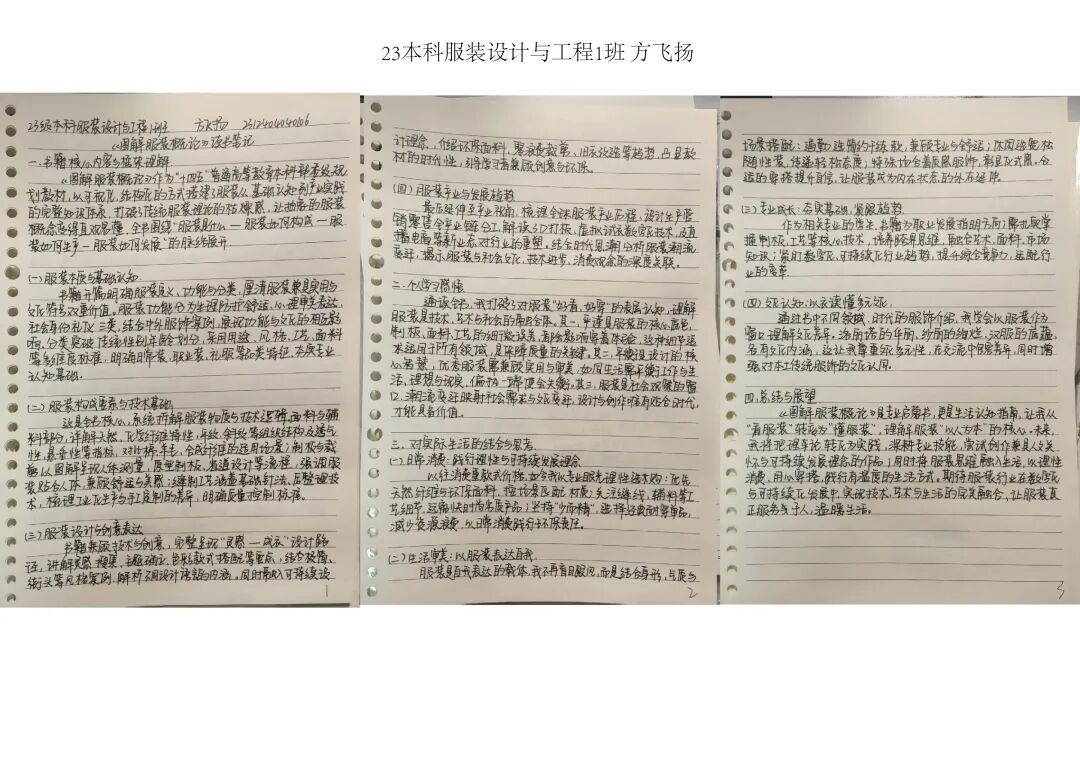 23本科服装设计与工程1班 方飞扬
23级本科服装设计与工程1班 方飞扬 2312404040106
《图解服装概论》读书笔记
一、书籍核心内容与框架理解
《图解服装概论》作为“十四五”普通高等教育本科部委级规
划教材，以可视化、结构化的方式搭建了服装从基础认知到产业实践
的完整知识体系，打破了传统服装理论的枯燥感，让抽象的服装
概念变得直观易懂。全书围绕“服装是什么—服装如何构成—服
装如何生产—服装如何发展”的脉络展开。
(一)服装本质与基础认知
书籍开篇明确服装定义、功能与分类，厘清服装兼具实用与
文化符号双重价值。服装功能分为生理防护舒适、心理审美表达、
社会身份礼仪三类，结合中外服饰案例，展现功能与文化的相互影
响。分类突破传统性别年龄划分，采用用途、风格、工艺、面料
等多维度标准，明确日常装、职业装、礼服等品类特征，夯实专业
认知基础。
(二)服装构成要素与技术基础
这是全书核心，系统拆解服装物质与技术逻辑。面料与辅
料部分，详解天然、化学纤维特性，平纹、斜纹等组织结构及透气
性、悬垂性等指标，对比棉、羊毛、合成纤维的适用场景；制板与裁
剪以图解呈现人体测量、原型制板、省道设计等流程，强调服
装贴合人体、兼顾舒适与美感；缝制工艺涵盖基础针法、后整理技
术，梳理工业化生产与手工定制的差异，明确质量控制标准。
(三)服装设计与创意表达
书籍兼顾技术与创意，完整呈现“灵感—成衣”设计路
径，讲解灵感搜集、主题确立、色彩款式搭配等要点，结合极简、
街头等风格案例，解析不同设计语言的内涵。同时融入可持续设
1
计理念，介绍环保面料、零浪费裁剪、旧衣改造等趋势，凸显教
材的时代性，引导学习者兼顾创意与环保。
(四)服装产业与发展趋势
最后延伸至产业视角，梳理全球服装产业历程、设计生产营
销零售全产业链分工，解读3D打板、虚拟试衣数字化技术，及直
播电商等新业态对行业的重塑。结合时代思潮分析服装潮流
变迁，揭示服装与社会文化、技术进步、消费观念的深度关联。
二、个人学习感悟
通读全书，我打破了对服装“好看、好穿”的表层认知，理解
服装是技术、艺术与社会的融合体。其一，平缝是服装的核心底色，
制板、面料、工艺的细微误差，都会影响穿着体验，这种细节追
求适用于所有领域，是保障质量的关键。其二，平衡是设计的核
心智慧，优秀服装需兼顾实用与审美，如同生活需平衡工作与生
活、理想与现实，偏执一端便会失衡。其三，服装是社会观察的窗
口，潮流变迁映射社会需求与文化变迁，设计与创作唯有贴合时代，
才能具有价值。
三、对实际生活的结合与思考
(一)日常消费：践行理性与可持续发展理念
以往消费重款式价格，如今我以专业眼光理性选购：优先
天然纤维与环保面料，按场景匹配材质；关注缝线、辅料等工
艺细节，远离快时尚劣质产品；坚持“少而精”，选择经典耐穿单品，
减少资源浪费，以日常消费践行环保责任。
(二)生活审美：以服装表达自我
服装是自我表达的载体，我不再盲目跟风，而是结合身形、气质与
2
场景搭配：通勤选简约干练款，兼顾专业与舒适；休闲选宽松
随性装，传递轻松态度；特殊场合着质感服饰，彰显仪式感。合
适的穿搭提升自信，让服装成为内在状态的外在延伸。
(三)专业成长：夯实基础，紧跟趋势
作为相关专业的学生，书籍为职业发展指明方向：需扎实掌
握制板、工艺等核心技术，培养跨界思维，融合艺术、面料、市场
知识；紧盯数字化、可持续化行业趋势，提升综合竞争力，适配行
业的变革。
(四)文化认知：以衣读懂多元
通过书中不同领域、时代的服饰介绍，我学会以服装作为
窗口理解文化差异。汤丽的华丽、纱丽的绚烂、汉服的底蕴，
各有文化内涵，这让我尊重文化多元性，在交流中包容差异，同时增
强对本土传统服饰的文化认同。
四、总结与展望
《图解服装概论》是专业启蒙书，更是生活认知指南，让我从
“看服装”转变为“懂服装”，理解服装“以人为本”的核心。未来，
我将把理论转化为实践，深耕专业技能，尝试创作兼具人文关
怀与可持续发展理念的作品；同时将服装思维融入生活，以理性
消费、用心穿搭，践行有温度的生活方式。期待服装行业在数字化
与可持续化发展中，实现技术、艺术与生活的完美融合，让服装真
正服务于人，温暖生活。
3